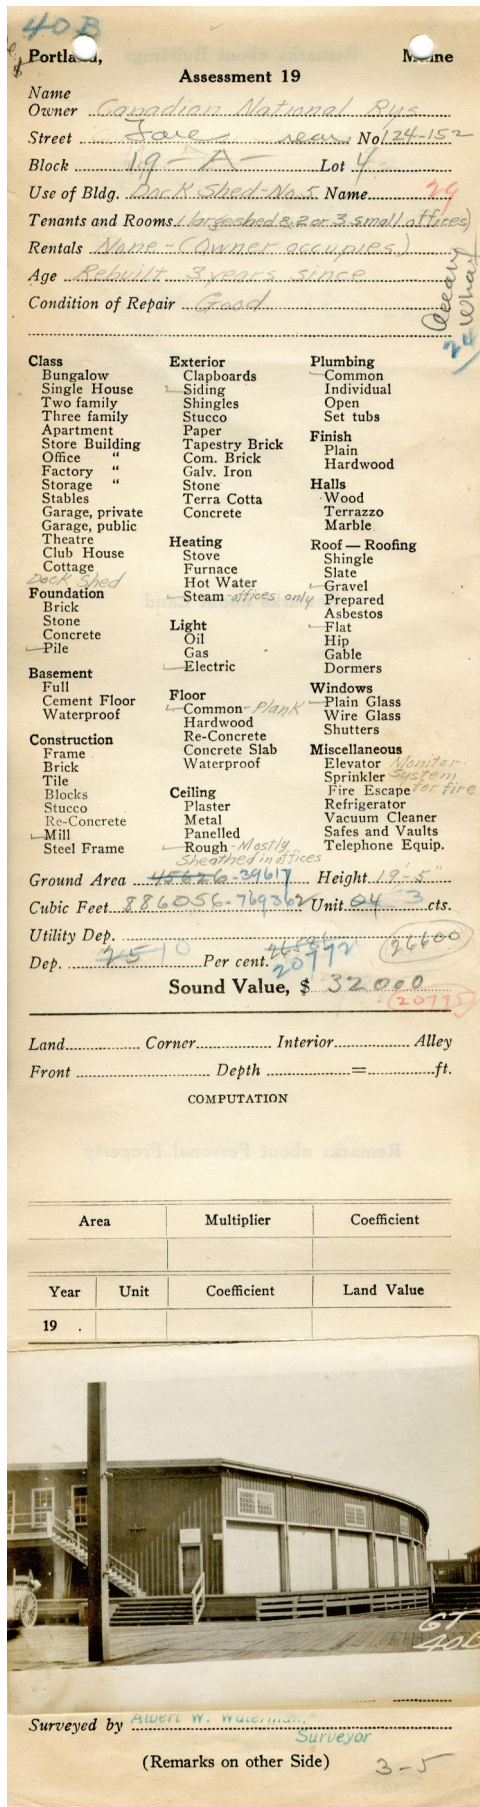 40B
Portland, Maine
Assessment 19
Name
Owner Canadian National Rys
Street Fore rear No. 124-152
Block 19-A- Lot 4
Use of Bldg. Dock Shed-No.5 Name 29
Tenants and Rooms (1 large shed & 2 or 3 small offices)
Rentals None-(Owner occupies)
Age Rebuilt 3 years since
Condition of Repair Good
24 Wharf
Class
Bungalow
Single House
Two family
Three family
Apartment
Store Building
Office "
Factory "
Storage "
Stables
Garage, private
Garage, public
Theatre
Club House
Cottage
Dock Shed
Foundation
Brick
Stone
Concrete
Pile
Basement
Full
Cement Floor
Waterproof
Construction
Frame
Brick
Tile
Blocks
Stucco
Re-Concrete
Mill
Steel Frame
Exterior
Clapboards
Siding
Shingles
Stucco
Paper
Tapestry Brick
Com. Brick
Galv. Iron
Stone
Terra Cotta
Concrete
Heating
Stove
Furnace
Hot Water
Steam-offices only
Light
Oil
Gas
Electric
Floor
Common-Plank
Hardwood
Re-Concrete
Concrete Slab
Waterproof
Ceiling
Plaster
Metal
Panelled
Rough-Mostly
Sheathed in offices
Plumbing
Common
Individual
Open
Set tubs
Finish
Plain
Hardwood
Halls
Wood
Terrazzo
Marble
Roof — Roofing
Shingle
Slate
Gravel
Prepared
Asbestos
Flat
Hip
Gable
Dormers
Windows
Plain Glass
Wire Glass
Shutters
Miscellaneous
Elevator Monitor
Sprinkler System
Fire Escape for fire
Refrigerator
Vacuum Cleaner
Safes and Vaults
Telephone Equip.
Ground Area 45626-39617 Height 19'-5"
Cubic Feet 886056-769362 Unit 04 3 cts.
Utility Dep. 26600
Dep. 25 10 Per cent. 26586 20772
Sound Value, $ 32000
(20775)
Land Corner Interior Alley
Front Depth = ft.
COMPUTATION
Area Multiplier Coefficient
Year Unit Coefficient Land Value
19 .
GT
40B
Surveyed by Albert W. Waterman,
Surveyor
(Remarks on other Side) 3-5